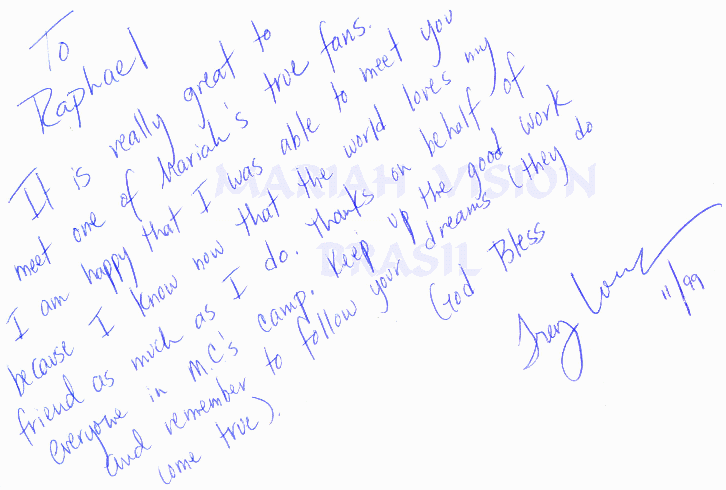 To
Raphael
It is really great to
meet one of Mariah's true fans.
I am happy that I was able to meet you
because I know now that the world loves my
friend as much as I do. Thanks on behalf of
everyone in M.C's camp. Keep up the good work
and remember to follow your dreams (they do
come true).
God Bless
Trey Lorenz
11/99
MARIAH VISION
BRASIL